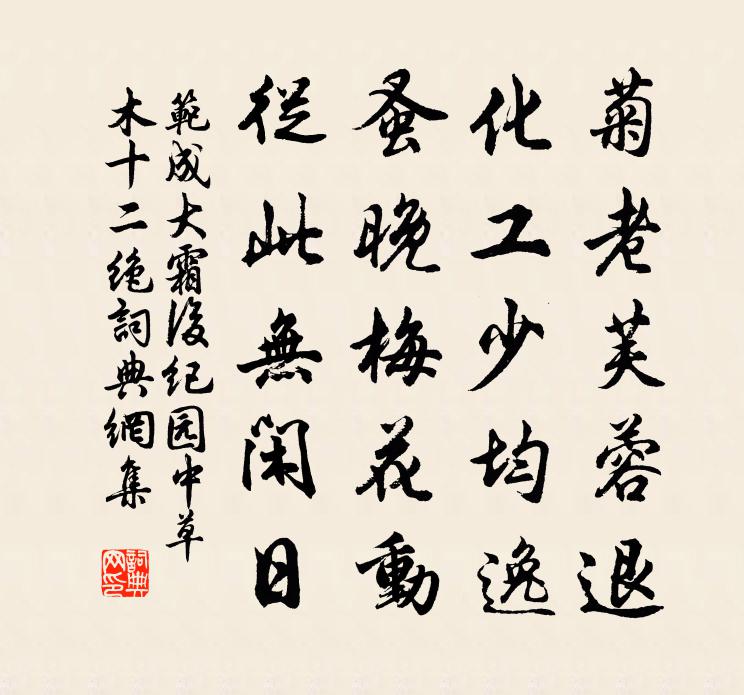 菊老芙蓉退
化工少均逸
蚤晚梅花動
從此無閑日
範成大霜後紀园中草
木十二絶詞典網集
詞典
网印